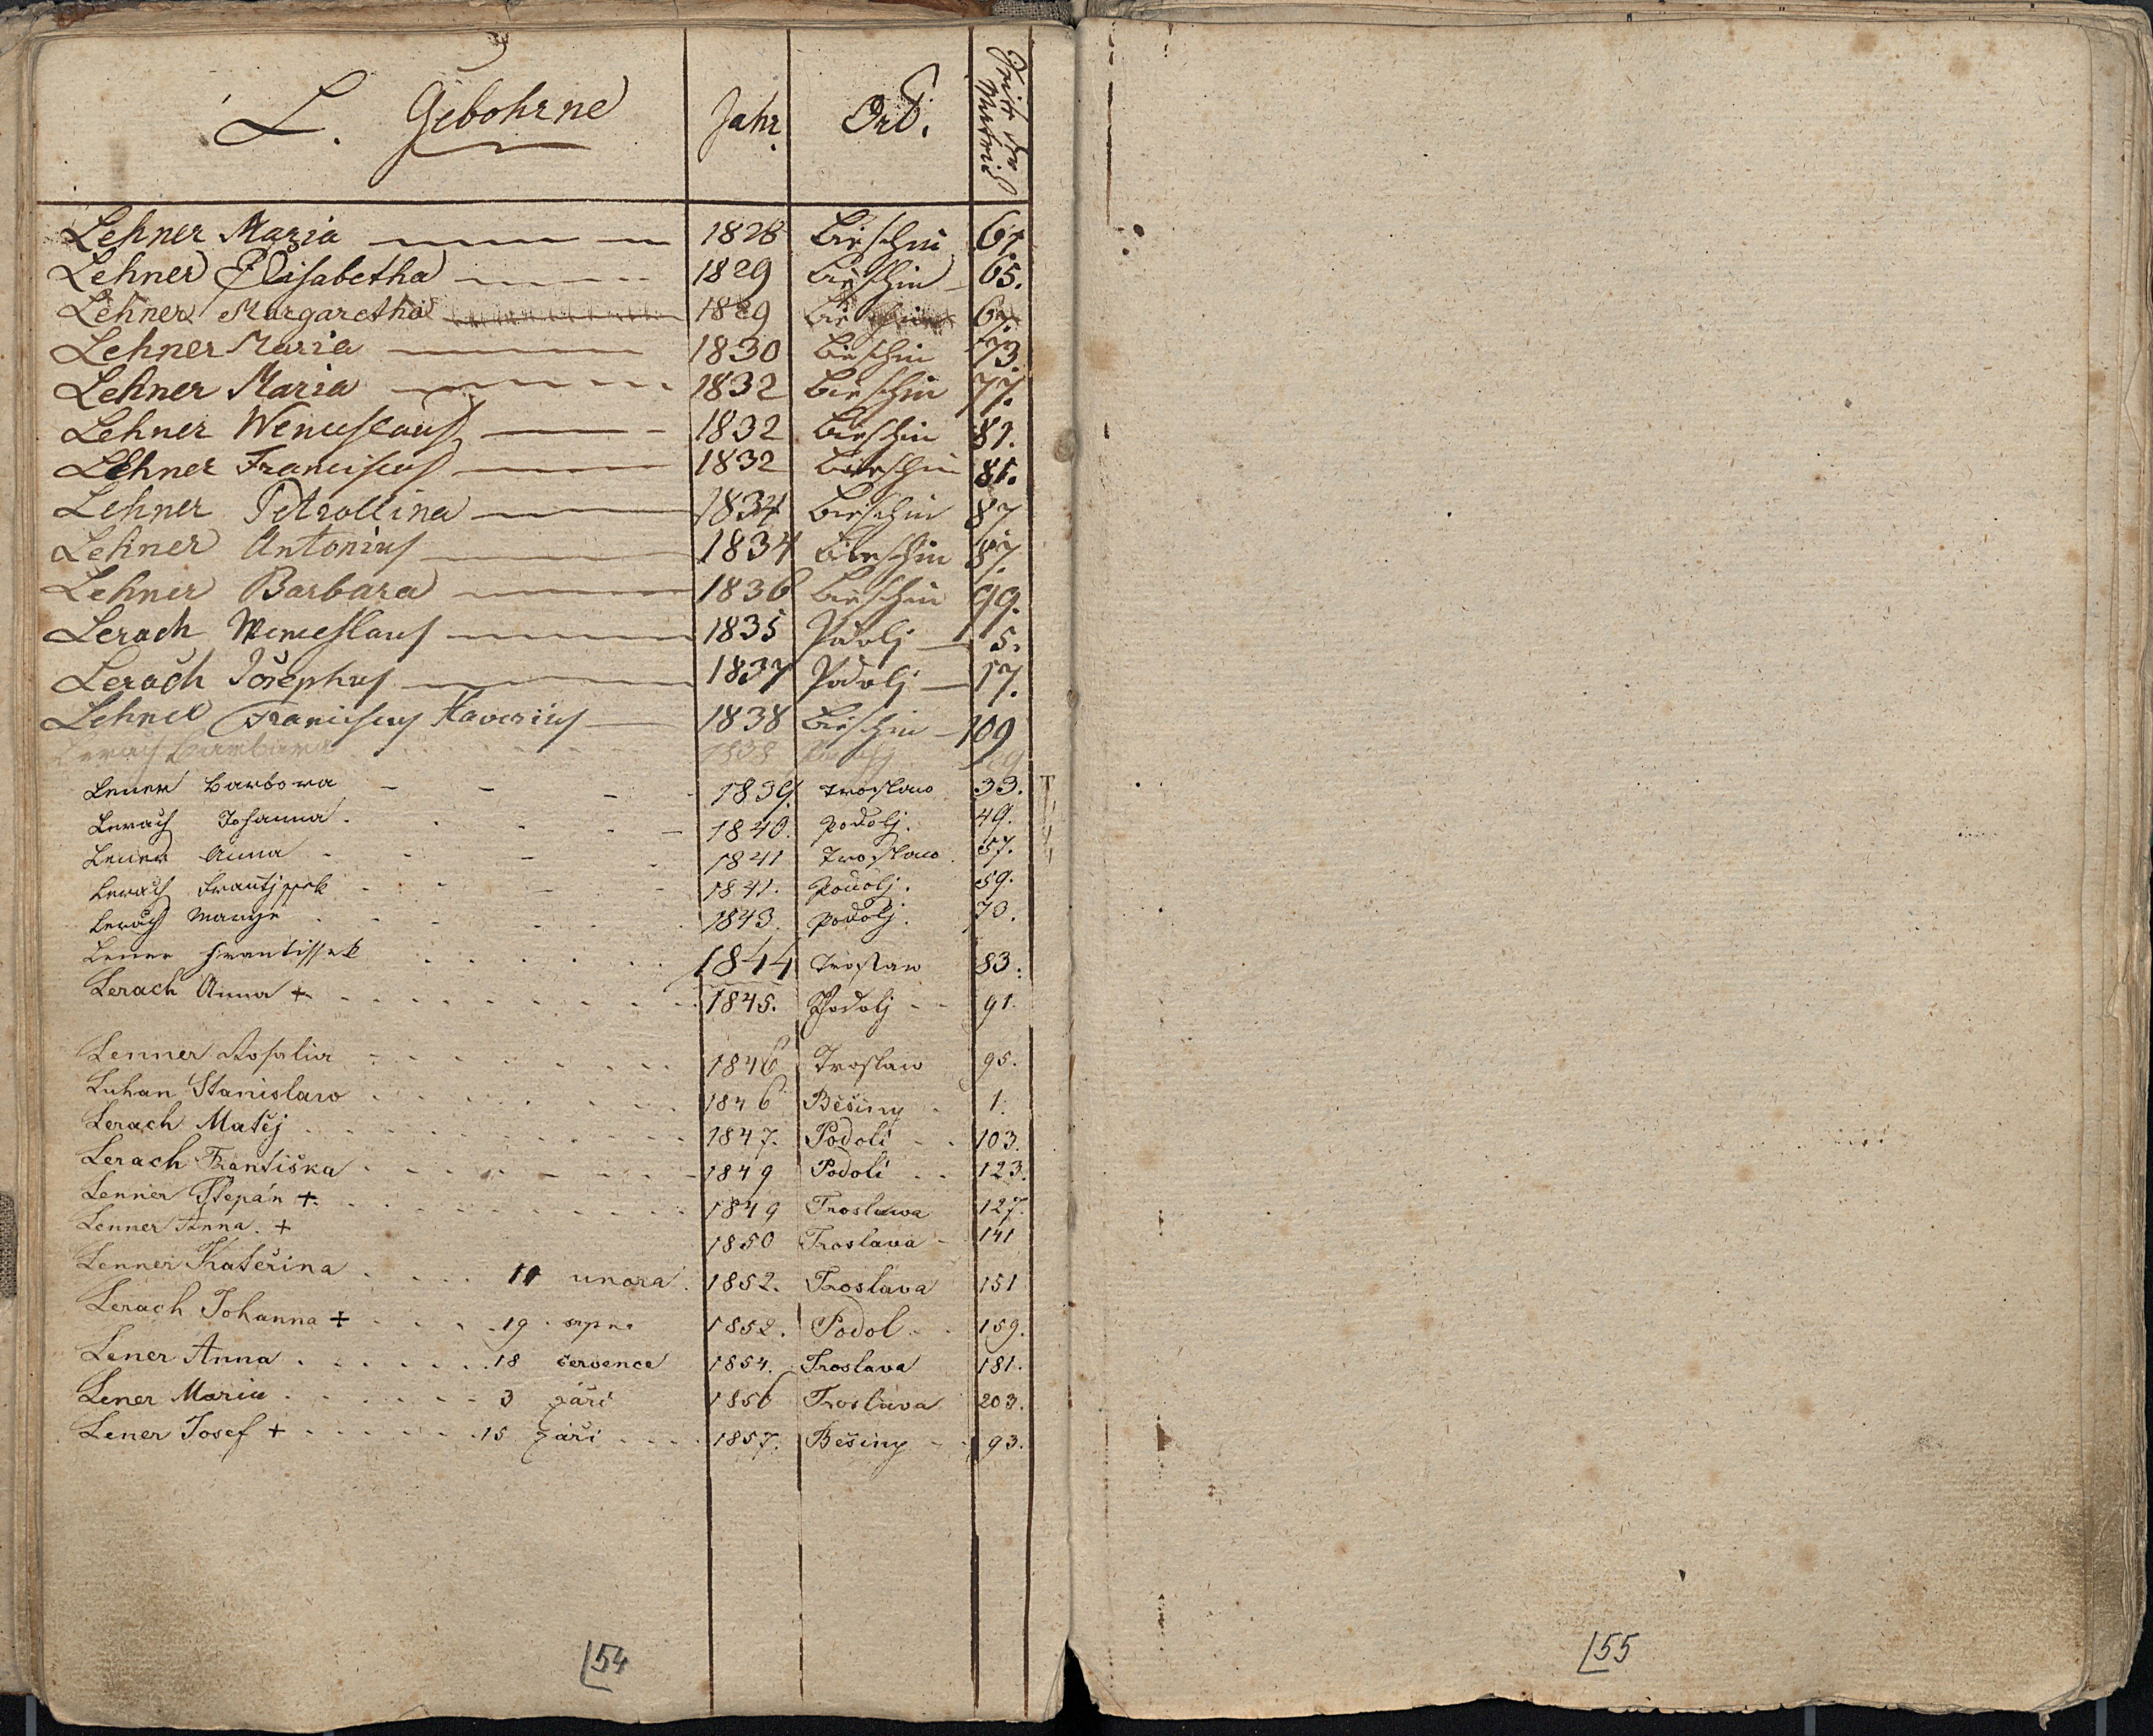 L. Gebohrne Jahr. Ort. Seite der Matrick
Lehner Maria 1828 Bieschin 61.
Lehner Elisabetha 1829 Bieschin 65.
Lehner Margaretha 1829 67.
Lehner Maria 1830 Bieschin 73.
Lehner Maria 1832 Bieschin 77.
Lehner Wenceslaus 1832 Bieschin 81.
Lehner Franciscus 1832 Bieschin 81.
Lehner Petrollina 1834 Bieschin 87
Lehner Antonius 1834 Bieschin 87.
Lehner Barbara 1836 Bieschin 99.
Lerach Wenceslaus 1835 Podolj 5.
Lerach Josephus 1837 Podolj 17.
Lehner Franciscus Xaverius 1838 Bieschin 109
Lerach Barbara 1838
Lener Barbora 1839. Troslaw 33.
Lerach Johanna. 1840. Podolj. 49.
Lener Anna 1841 Troslaw. 57.
Lerach Frantjssek 1841. Podolj. 59.
Lerach Marye 1843. Podolj. 73.
Lener Frantissek 1844 Troslaw 83.
Lerach Anna + 1845. Podolj 91.
Lenner Rosalia 1846 Troslaw 95.
Luhan Stanislaw 1846 Běšiny 1.
Lerach Matěj 1847. Podolí 103.
Lerach Františka 1849 Podolí 123.
Lenner Štěpán + 1849 Troslawa 127.
Lenner Anna. + 1850 Troslava 141
Lenner Kateřina 11 unora. 1852. Troslava 151
Lerach Johanna + 19 srpna 1852. Podol 159.
Lener Anna 18 července 1854. Troslava 181.
Lener Maria 3 září 1856 Troslava 203.
Lener Josef + 15 září 1857. Běšiny 93.
54
55